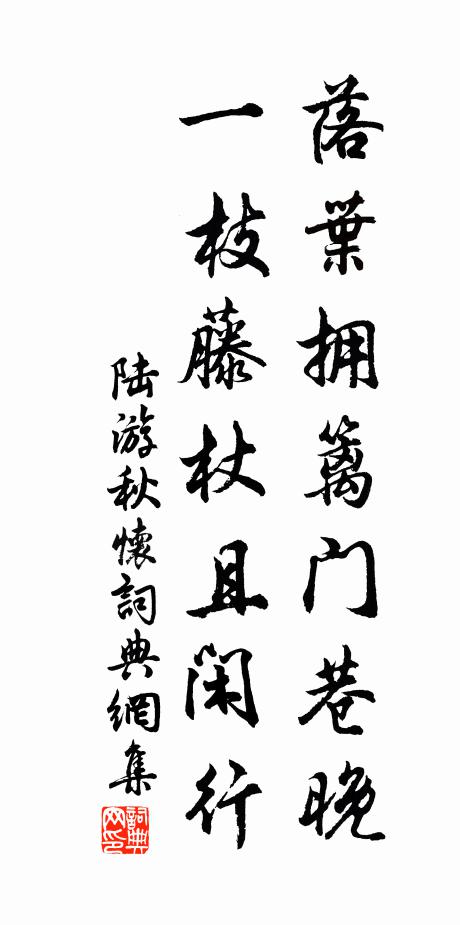 落葉拥篱门巷晚
一枝藤杖且闲行
陆游秋懷詞典網集
詞典
网印